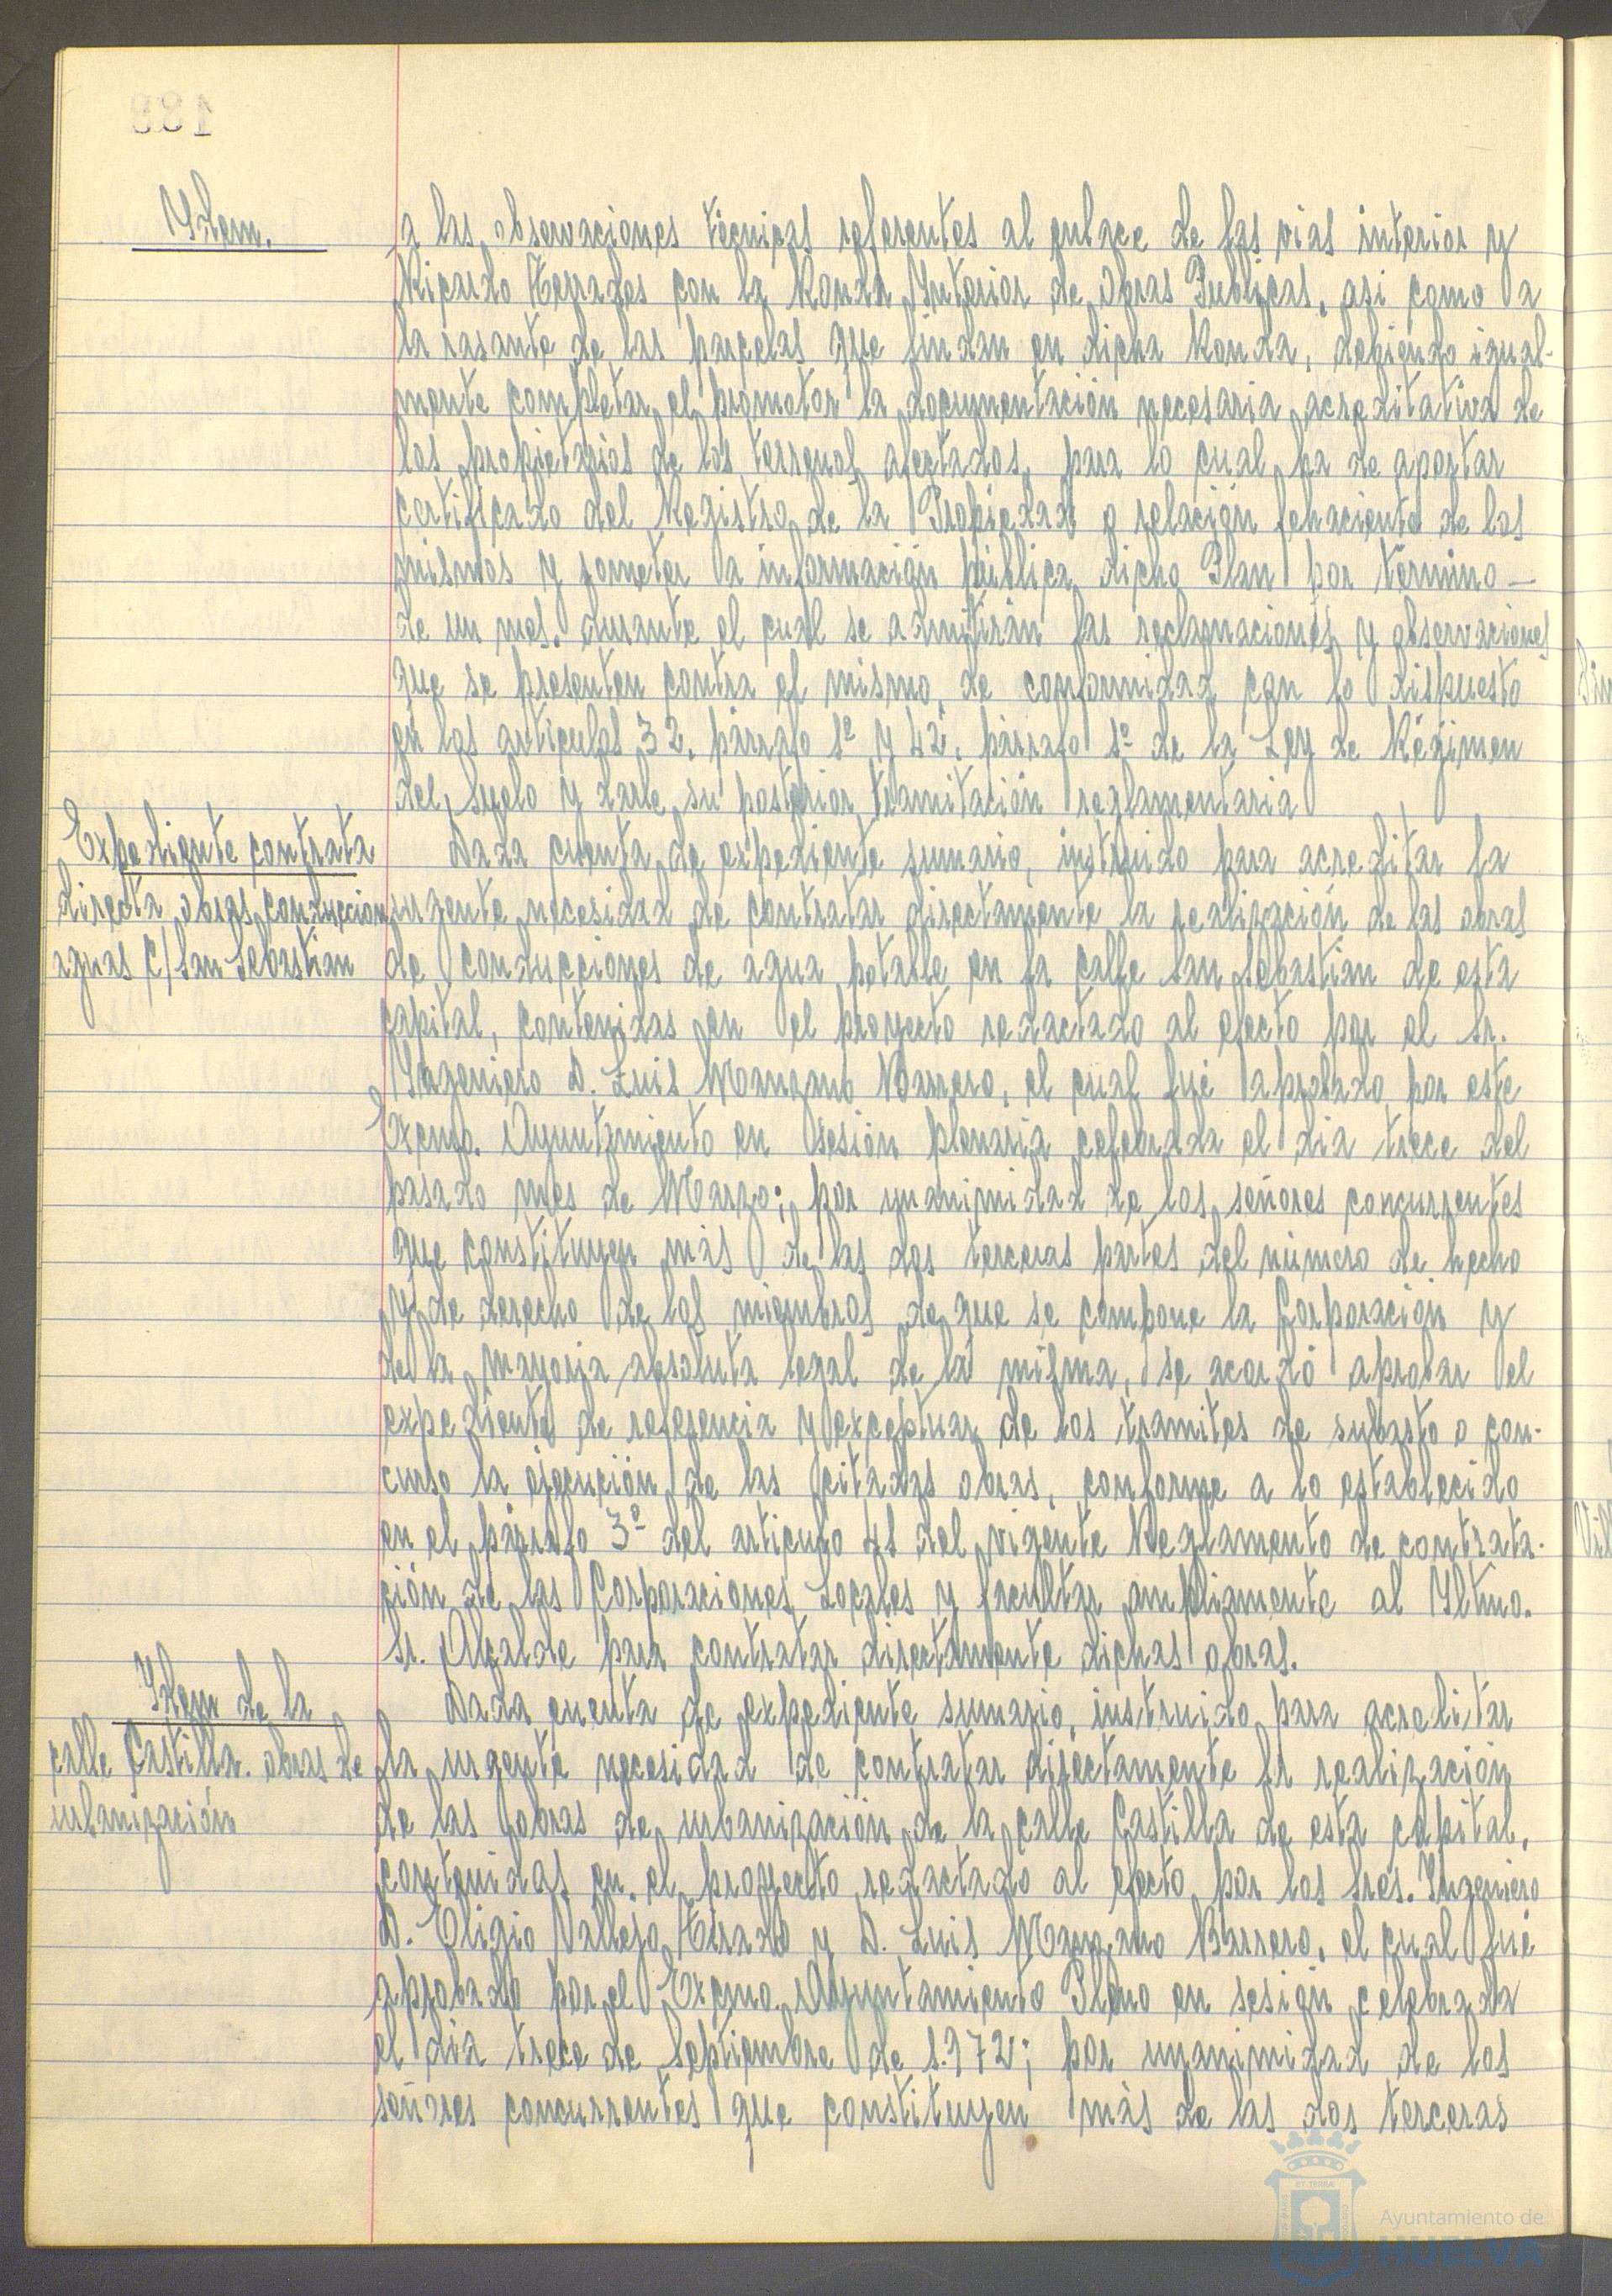 Ydem.
a las observaciones técnicas referentes al enlace de las vias interior y
Ricardo Terrades con la Ronda Interior de Obras Publicas, asi como a
la rasante de las parcelas que lindan en dicha Ronda, debiendo igual-
mente completar el promotor la documentación necesaria acreditativa de
los propietarios de los terrenos afectados, para lo cual ha de aportar
certificado del Registro de la Propiedad o relación fehaciente de los
mismos y someter a información pública dicho Plan por término
de un mes, durante el cual se admitirán las reclamaciones y observaciones
que se presenten contra el mismo, de conformidad con lo dispuesto
en los articulos 32, párrafo 1º y 42, párrafo 1º de la Ley de Régimen
del Suelo y darle su posterior tramitación reglamentaria
Expediente contrata
directa obras conduccion
aguas C/ San Sebastian
Dada cuenta de expediente sumario, instruido para acreditar la
urgente necesidad de contratar directamente la realización de las obras
de conducciones de agua potable en la calle San Sebastian de esta
capital, contenidas en el proyecto redactado al efecto por el Sr.
Ingeniero D. Luis Manzano Barrero, el cual fué aprobado por este
Excmo. Ayuntamiento en sesión plenaria celebrada el dia trece del
pasado mes de Marzo; por unanimidad de los señores concurrentes
que constituyen más de las dos terceras partes del número de hecho
y de derecho de los miembros de que se compone la Corporación y
de la mayoria absoluta legal de la misma, se acordó aprobar el
expediente de referencia y exceptuar de los tramites de subasta o con-
curso la ejecución de las citadas obras, conforme a lo establecido
en el párrafo 3º del articulo 41 del vigente Reglamento de contrata-
ción de las Corporaciones Locales y facultar ampliamente al Iltmo.
Sr. Alcalde para contratar directamente dichas obras.
Idem de la
calle Castilla. obras de
urbanización
Dada cuenta de expediente sumario, instruido para acreditar
la urgente necesidad de contratar directamente la realización
de las obras de urbanización de la calle Castilla de esta capital,
contenidas en el proyecto redactado al efecto por los Sres. Ingeniero
D. Eligio Vallejo Tirado y D. Luis Manzano Barrero, el cual fué
aprobado por el Excmo. Ayuntamiento Pleno en sesión celebrada
el dia trece de Septiembre de 1.972; por unanimidad de los
señores concurrentes que constituyen más de las dos terceras
Ayuntamiento de
HUELVA